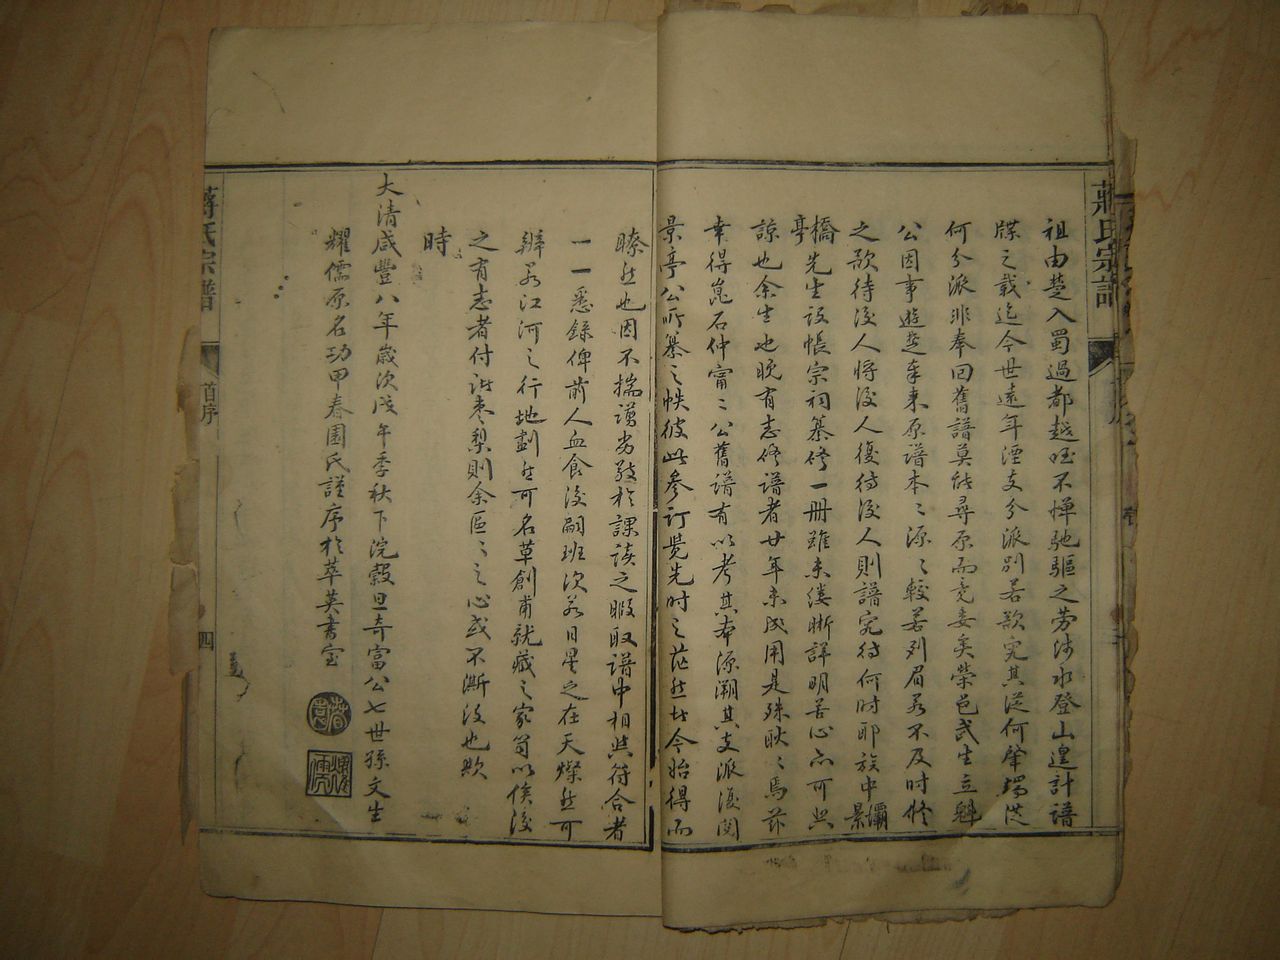 蔣氏宗譜
祖由楚入蜀過都越國不憚馳驅之勞涉水登山遑計譜
牒之載迄今世遠年湮支分派別若欲究其從何肇端從
何分派非奉回舊譜莫能尋原而竟委矣榮邑武生立魁
公因事遊楚奉來原譜本〻源〻較若列眉若不及時修
之欲待後人將後人復待後人則譜究待何時耶族中灞
橋先生設帳宗祠纂修一冊雖未縷晰詳明苦心亦可共
景亭
諒也余生也晚有志修譜者廿年未成用是殊耿〻焉茲
幸得崑石仲甯二公舊譜有以考其本源溯其支派復閱
景亭公所纂之帙彼此參訂覺先時之茫然者今始得而
瞭然也因不揣謭劣敬於課讀之暇取譜中相與符合者
一一悉錄俾前人血食後嗣班次若日星之在天燦然可
辨若江河之行地劃然可名草創甫就藏之家笥以俟後
之有志者付諸棗梨則余區〻之心或不漸沒也歟
時
大清咸豐八年歲次戊午季秋下浣穀旦奇富公七世孫文生
耀儒原名功甲春園氏謹序於萃英書室
蔣氏宗譜
首序
四